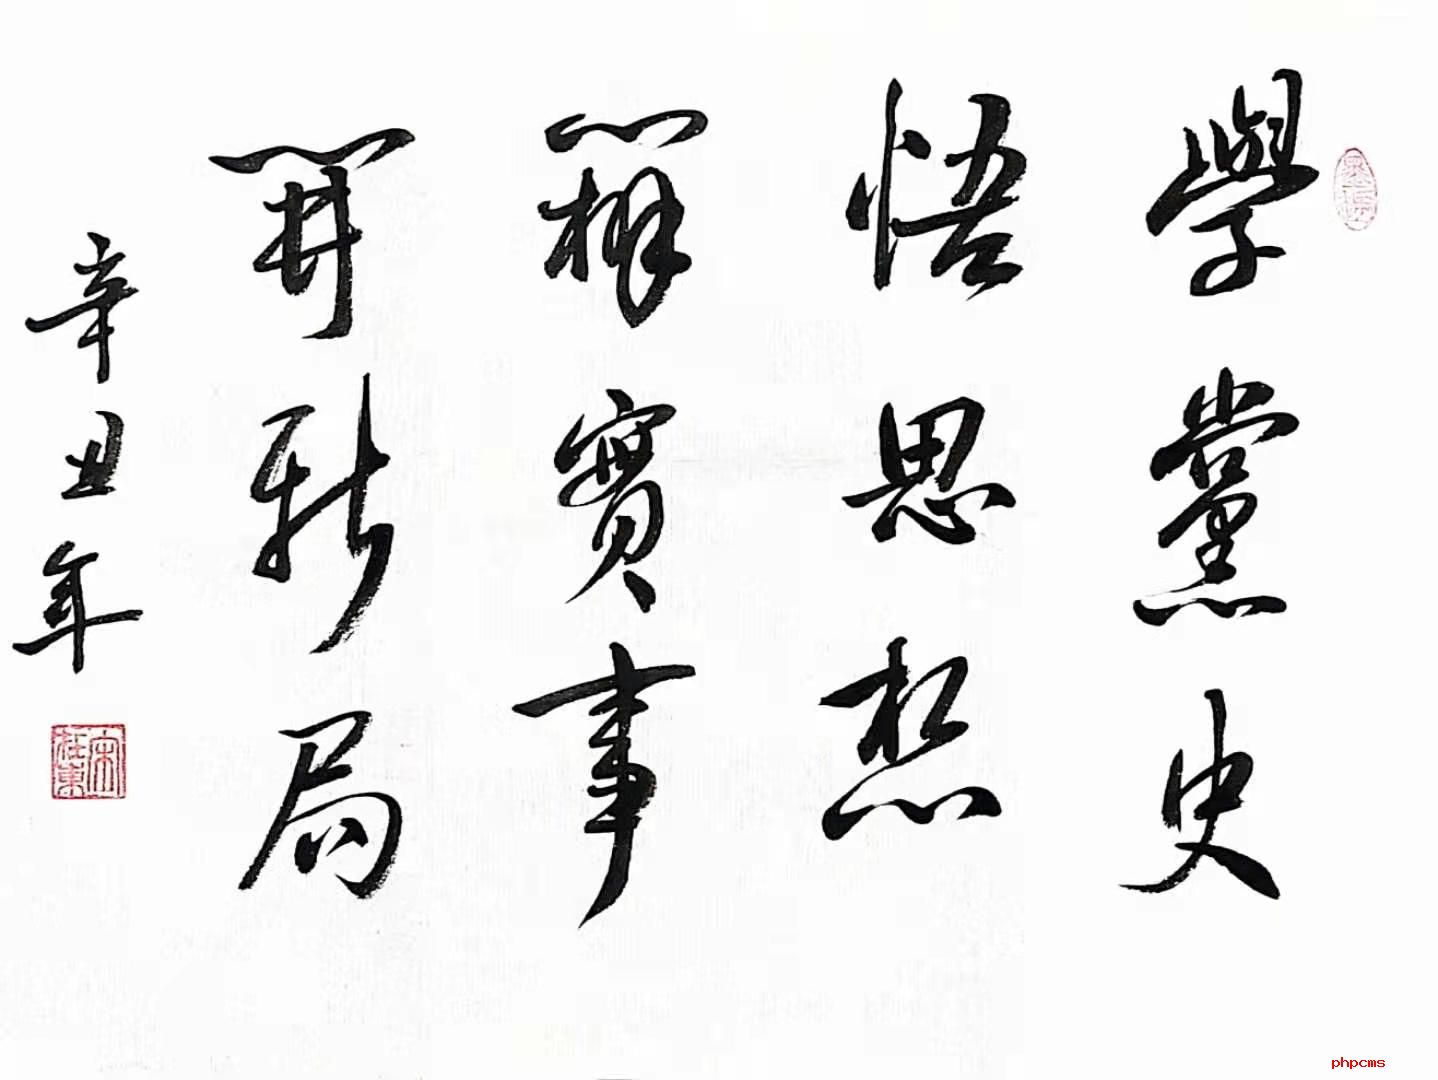 學黨史
悟思想
辦實事
開新局
辛丑年
phpcms